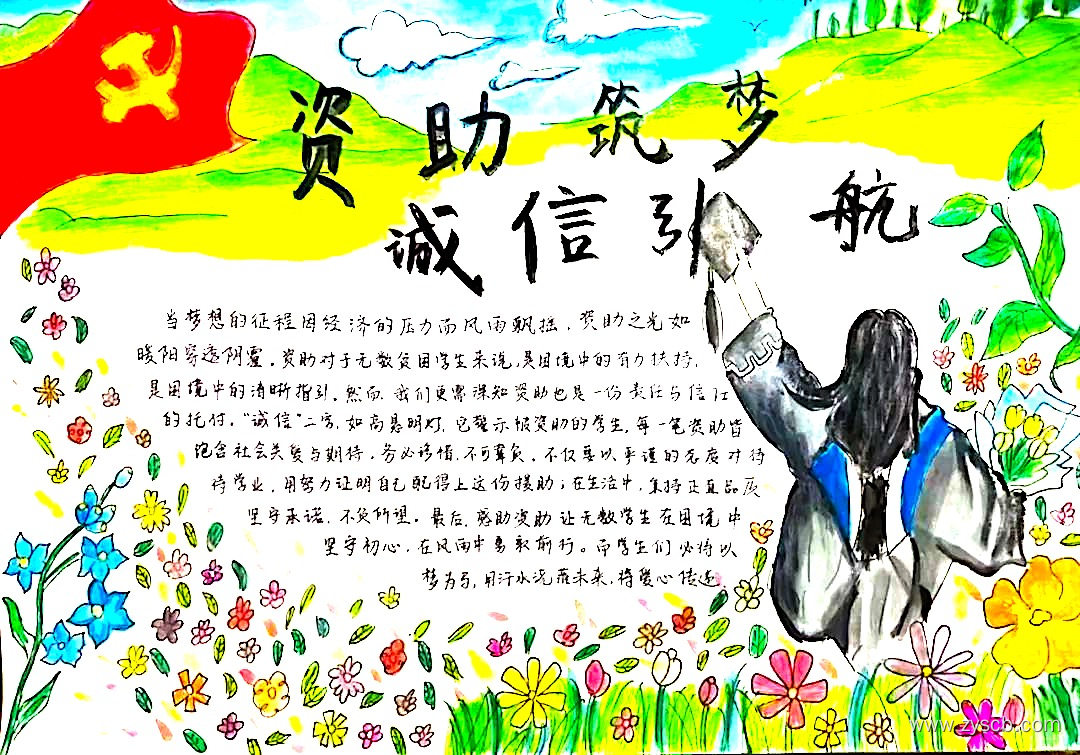 资助筑梦
诚信引航
当梦想的征程因经济的压力而风雨飘摇，资助之光如
暖阳穿透阴霾。资助对于无数贫困学生来说，是困境中的有力扶持，
是困境中的清晰指引。然而，我们更需深知资助也是一份责任与信任
的托付。“诚信”二字，如高悬明灯，它警示被资助的学生，每一笔资助皆
饱含社会关爱与期待，务必珍惜，不可辜负。不仅要以严谨的态度对待
待学业，用努力证明自己配得上这份援助；在生活中，秉持正直品质
坚守承诺，不负所望。最后，感助资助让无数学生在困境中
坚守初心，在风雨中勇敢前行。而学生们必将以
梦为马，用汗水浇灌未来，将爱心传递
www.zyscb.com